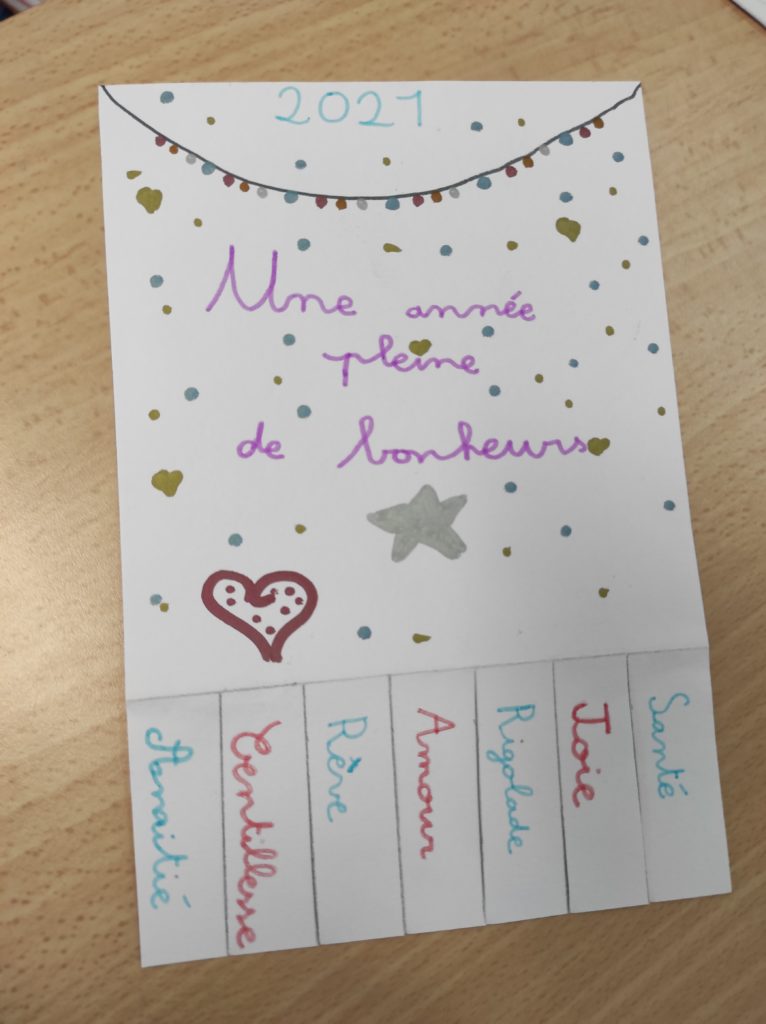 2021
Une année
pleine
de bonheurs
Amaitié
Gentillesse
Rêve
Amour
Rigolade
Joie
Santé